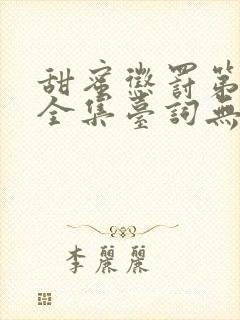 甜蜜懲罰第
全集臺詞無
李麗麗